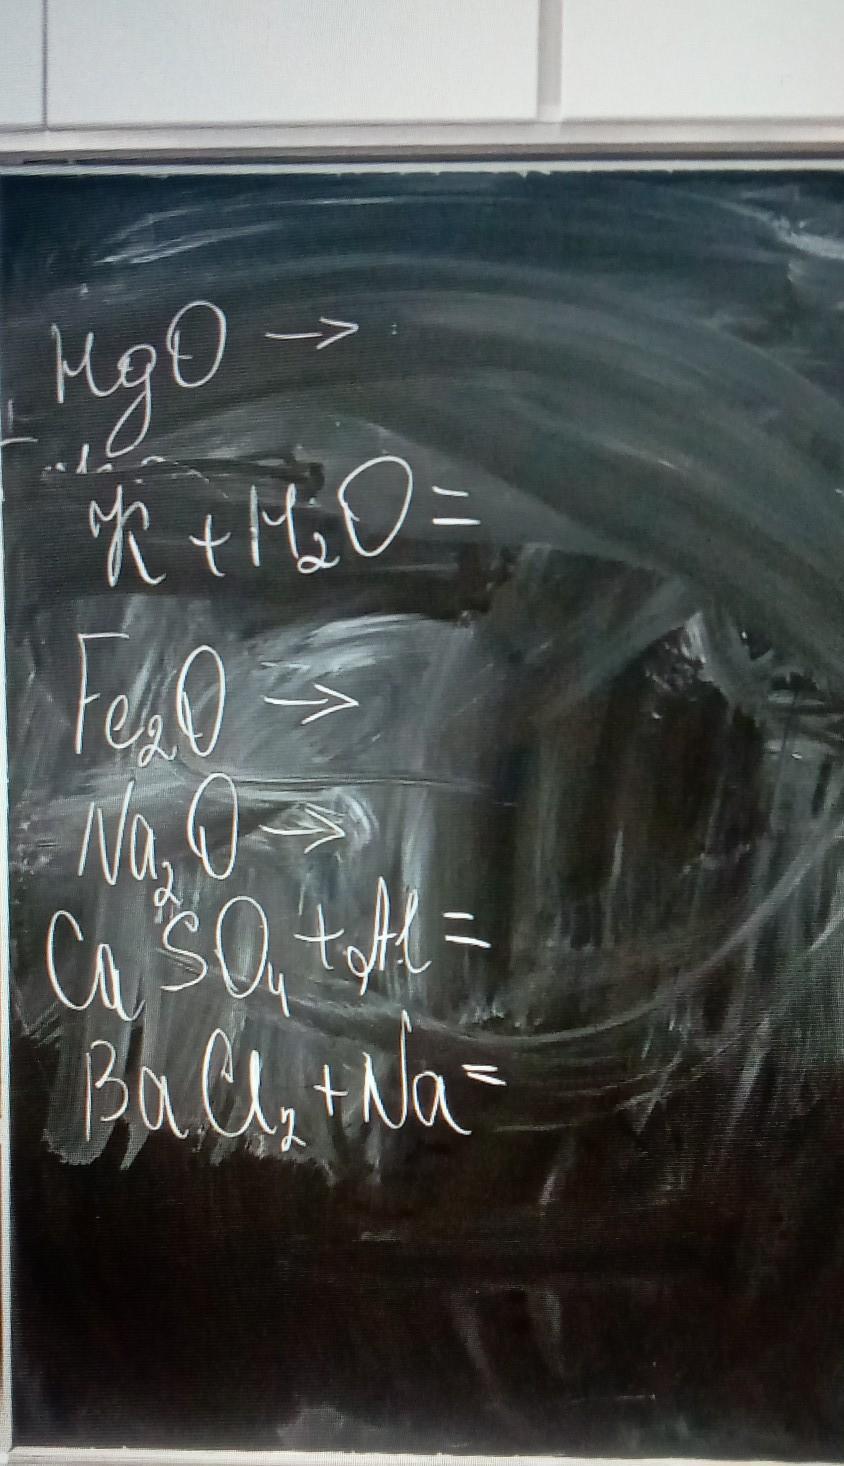 MgO →
K + H₂O =
Fe₂O →
Na₂O →
CaSO₄ + Al =
BaCl₂ + Na =